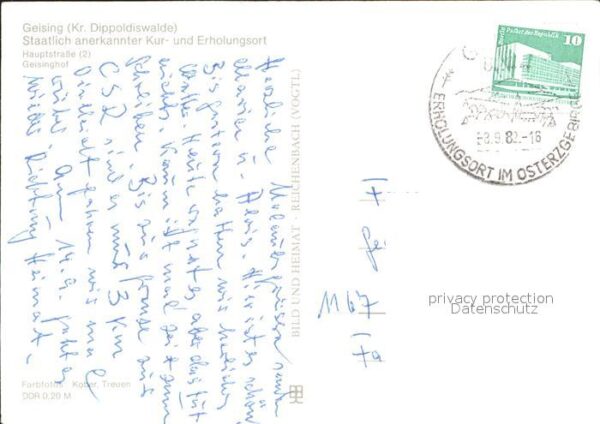 Geising (Kr. Dippoldiswalde)
Staatlich anerkannter Kur- und Erholungsort
Hauptstraße (2)
Geisinghof
Herzliche Urlaubsgrüsse senden
Marion u. Alois. Hier ist es schön
Bis gestern hatten wir herrliches
Wetter. Heute regnet es aber das tut
nichts. Kaum ist mal Zeit zum
schreiben. Bis zur Grenze zur
CSR sind es nur 3 km
Vielleicht fahren wir mal
rüber. Am 14.9. geht es
wieder Richtung Heimat.
BILD UND HEIMAT · REICHENBACH (VOGTL)
Farbfotos: Kober, Treuen
DDR 0,20 M
Berlin Palast der Republik
DDR
10
ERHOLUNGSORT IM OSTERZGEBIRGE
-8.9.82-16
1167
privacy protection
Datenschutz